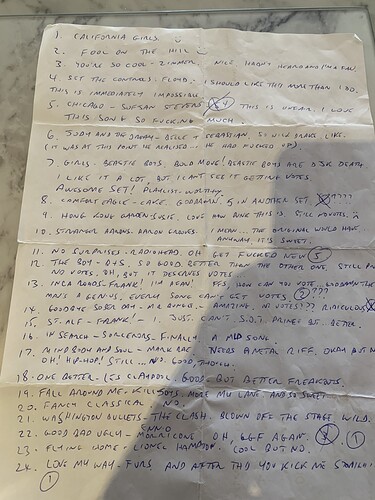 1. CALIFORNIA GIRLS.
2. FOOL ON THE HILL
3. YOU'RE SO COOL - ZIMMER. NICE HADN'T HEARD AND I'M A FAN.
4. SET THE CONTROLS - FLOYD - I SHOULD LIKE THIS MORE THAN I DO.
THIS IS IMMEDIATELY IMPOSSIBLE.
5. CHICAGO - SUFJAN STEVENS THIS IS UNFAIR. I LOVE
THIS SONG SO FUCKING MUCH.
6. JUDY AND THE DREAM - BELLE & SEBASTIAN, SO NICK DRAKE LIKE.
(IT WAS AT THIS POINT HE REALISED - HE HAD FUCKED UP).
7. GIRLS - BEASTIE BOYS, BOLD MOVE! BEASTIE BOYS ARE DEATH.
I LIKE IT A LOT, BUT I CAN'T SEE IT GETTING VOTES.
AWESOME SET! PLAYLIST-WORTHY.
8. COMFORT EAGLE - CAKE. GODDAMN. 5 IN ANOTHER SET. ????
9. HONG KONG GARDEN - SUSIE. LOVE HOW PINK THIS IS. STILL NO VOTES.
10. STRANGER AARONS. ARRON GROVES. I MEAN... THE ORIGINAL WOULD HAVE
ANYWAY, IT IS SWEET.
11. NO SURPRISES - RADIOHEAD. OH GET FUCKED NOW (5)
12. THE BOY - SO GOOD BETTER THAN THE OTHER ONE, STILL
NO VOTES. OH, BUT IT DESERVES VOTES
13. INCA ROADS - FRANK! I'M DEAD! FFS, HOW CAN YOU VOTE... GODDAMN THE
MAN'S A GENIUS, EVERY SONG CAN'T GET VOTES. (2)???
14. GOODBYE SOBER DAY - MR BUNGLE - AMAZING. NO VOTES?? RIDICULOUS
15. ST. ALF - FRANK! - JUST. CAN'T. S.D.T. BETTER.
16. IN SEARCH - SORCERORS. FINALLY A SONG.
17. MIND BODY AND SOUL - MARK NEEDS A METAL RIFF. OKAY BUT NO
OH! HIP-HOP! STILL. NO. GOOD, THOUGH.
18. ONE BETTER - LES CLAYPOOL. GOOD - BUT BETTER FREAKOUTS.
19. FALL AROUND ME - KILLJOYS. MORE MY LANE AND SO SWEET
20. FANCY CLASSICAL NO.
21. WASHINGTON BULLETS - THE CLASH. BLOWN OFF THE STAGE. WILD.
22. GOOD BAD UGLY - ENNIO MORRICONE. OH, GGF AGAIN. (1)
23. FLYING HOME - LIONEL HAMPTON. COOL BUT NO.
24. LOVE MY WAY - FURS AND AFTER THO YOU KICK ME
(1)